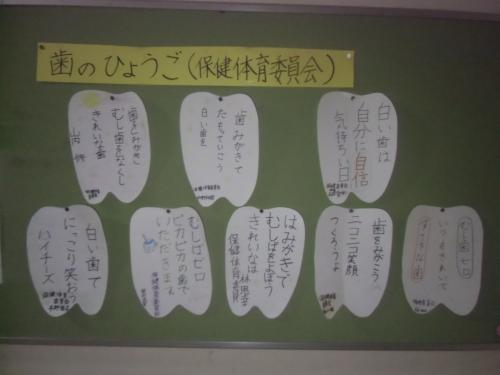 歯のひょうご(保健体育委員会)
歯をみがき
むし歯をなくし
きれいな歯
歯みがきで
たもっていこう
白い歯を
白い歯は
自分に自信
気持ちいい日
白い歯で
にっこり笑おう
ハイチーズ
むしばゼロ
ピカピカの歯で
いただきます
はみがきで
むしばをよぼう
きれいなは
保健体育委員
歯をみがこう
ニコニコ笑顔
つくろうよ
むし歯ゼロ
いつもきれいで
すてきな歯